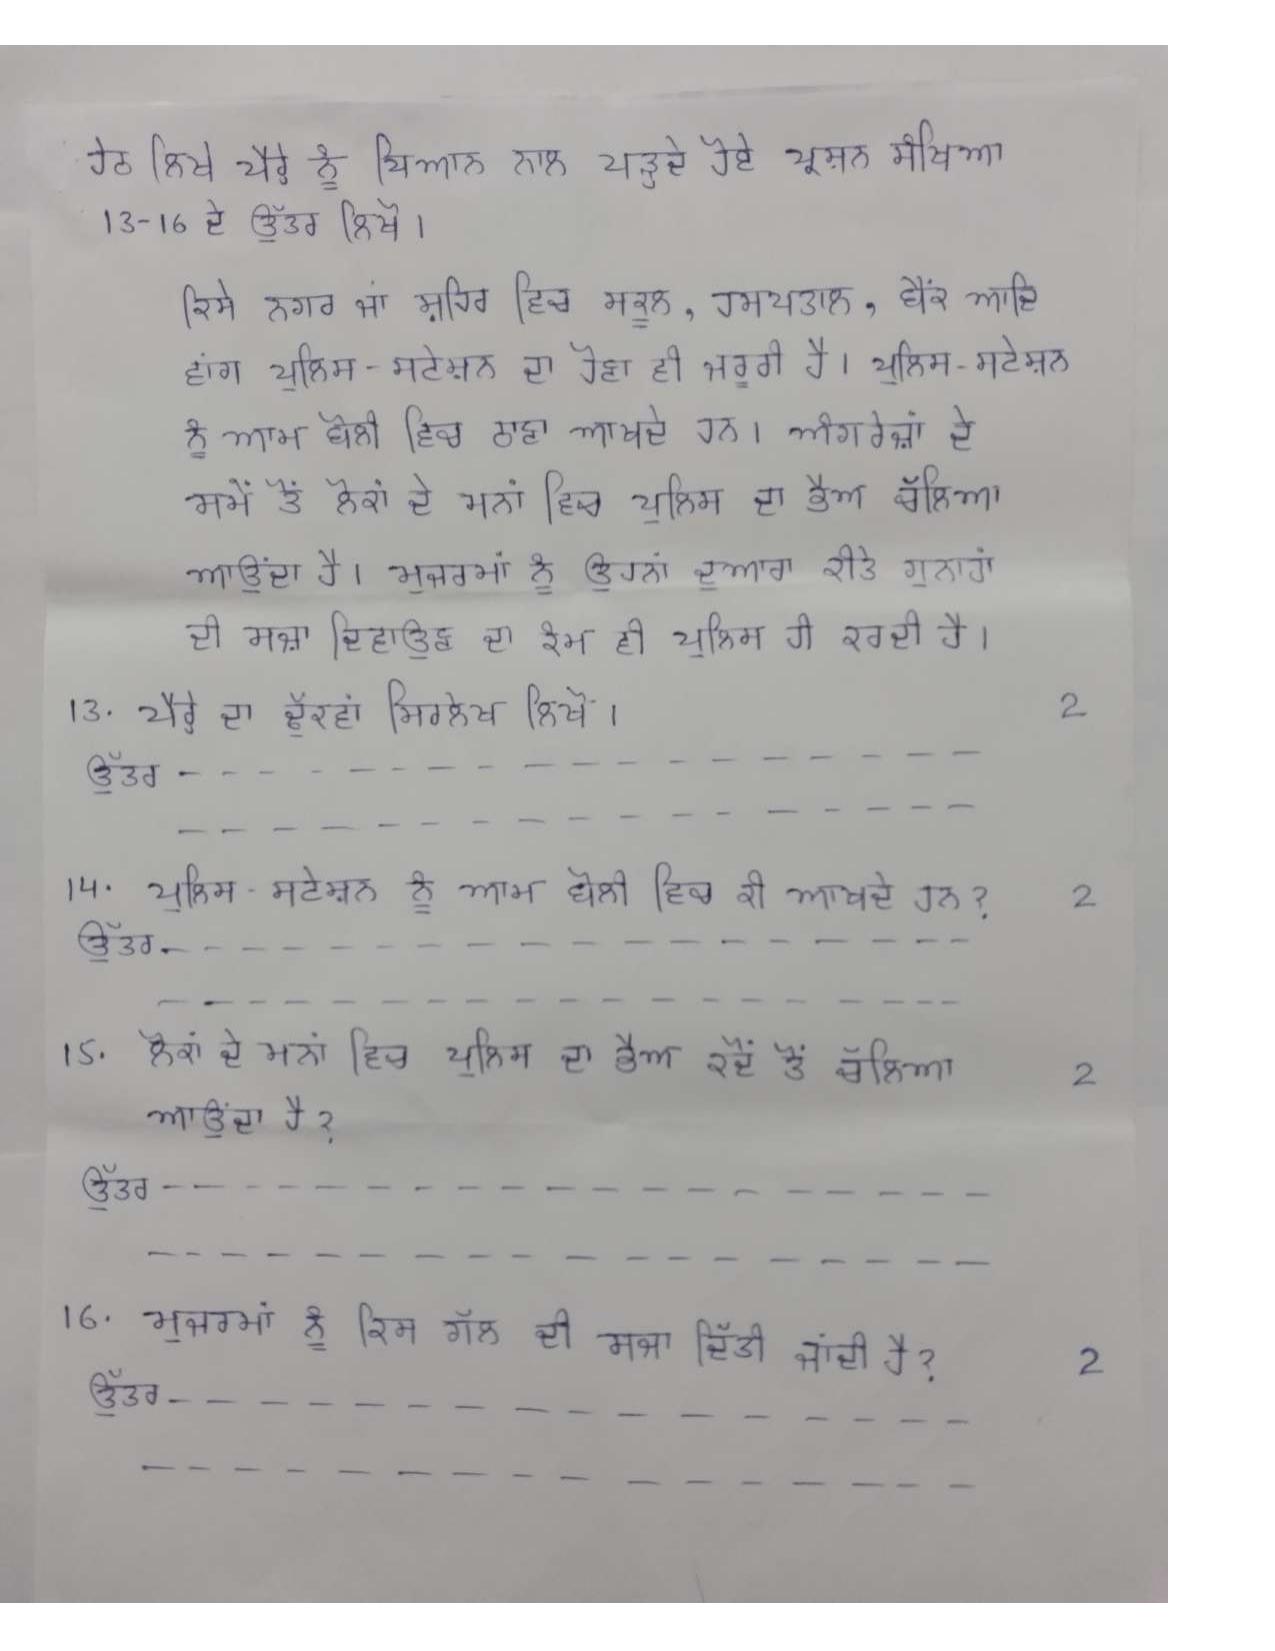 ਹੇਠ ਲਿਖੇ ਪੈਰ੍ਹੇ ਨੂੰ ਧਿਆਨ ਨਾਲ ਪੜ੍ਹਦੇ ਹੋਏ ਪ੍ਰਸ਼ਨ ਸੰਖਿਆ
13-16 ਦੇ ਉੱਤਰ ਲਿਖੋ।
ਕਿਸੇ ਨਗਰ ਜਾਂ ਸ਼ਹਿਰ ਵਿਚ ਸਕੂਲ, ਹਸਪਤਾਲ, ਬੈਂਕ ਆਦਿ
ਵਾਂਗ ਪੁਲਿਸ-ਸਟੇਸ਼ਨ ਦਾ ਹੋਣਾ ਵੀ ਜਰੂਰੀ ਹੈ। ਪੁਲਿਸ-ਸਟੇਸ਼ਨ
ਨੂੰ ਆਮ ਬੋਲੀ ਵਿਚ ਠਾਣਾ ਆਖਦੇ ਹਨ। ਅੰਗਰੇਜ਼ਾਂ ਦੇ
ਸਮੇਂ ਤੋਂ ਲੋਕਾਂ ਦੇ ਮਨਾਂ ਵਿਚ ਪੁਲਿਸ ਦਾ ਭੈਅ ਚੱਲਿਆ
ਆਉਂਦਾ ਹੈ। ਮੁਜਰਮਾਂ ਨੂੰ ਉਹਨਾਂ ਦੁਆਰਾ ਕੀਤੇ ਗੁਨਾਹਾਂ
ਦੀ ਸਜ਼ਾ ਦਿਵਾਉਣ ਦਾ ਕੰਮ ਵੀ ਪੁਲਿਸ ਹੀ ਕਰਦੀ ਹੈ।
13. ਪੈਰ੍ਹੇ ਦਾ ਢੁੱਕਵਾਂ ਸਿਰਲੇਖ ਲਿਖੋ। 2
ਉੱਤਰ - - - - - - - - - - - - - - - - - -
- - - - - - - - - - - - - - - - - -
14. ਪੁਲਿਸ-ਸਟੇਸ਼ਨ ਨੂੰ ਆਮ ਬੋਲੀ ਵਿਚ ਕੀ ਆਖਦੇ ਹਨ? 2
ਉੱਤਰ - - - - - - - - - - - - - - - - - -
- - - - - - - - - - - - - - - - - -
15. ਲੋਕਾਂ ਦੇ ਮਨਾਂ ਵਿਚ ਪੁਲਿਸ ਦਾ ਭੈਅ ਕਦੋਂ ਤੋਂ ਚੱਲਿਆ 2
ਆਉਂਦਾ ਹੈ?
ਉੱਤਰ - - - - - - - - - - - - - - - - - -
- - - - - - - - - - - - - - - - - -
16. ਮੁਜਰਮਾਂ ਨੂੰ ਕਿਸ ਗੱਲ ਦੀ ਸਜਾ ਦਿੱਤੀ ਜਾਂਦੀ ਹੈ? 2
ਉੱਤਰ - - - - - - - - - - - - - - - - - -
- - - - - - - - - - - - - - - - - -